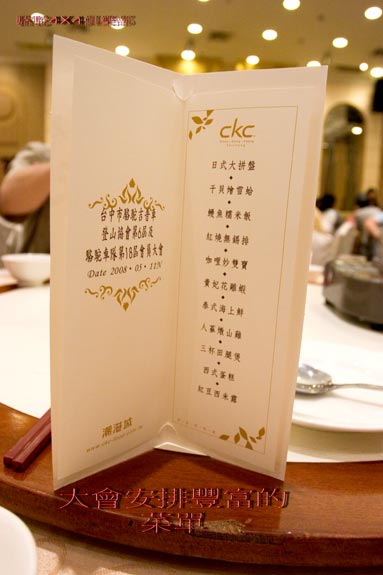 台中市駱駝吉普車
登山協會第6屆及
駱駝車隊第18屆會員大會
Date 2008・05・11N
潮港城
ckc
日式大拼盤
干貝燴雪蛤
鰻魚糯米飯
紅燒無錫排
咖哩炒雙寶
黃妃花雕蝦
泰式海上鮮
人蔘燉山雞
三杯田雞煲
西式蛋糕
紅豆西米露
大會安排豐富的
菜單